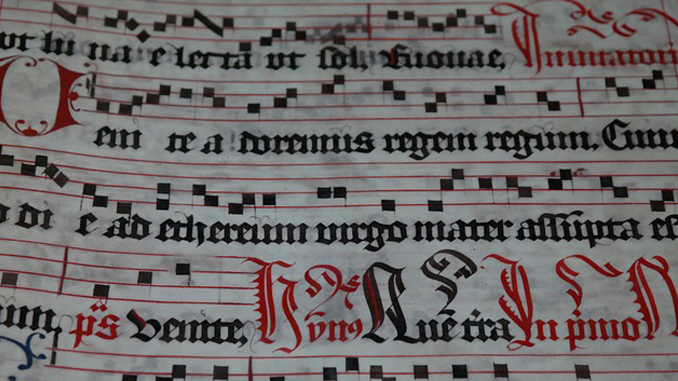 ut lu na e lecta ut sol, Euouae, Inuitatori
Veni te a doremus regem regum, Cuiu
o di e ad ethereum uirgo mater assūpta es
um, ps Venite, Hyn9 Quē t̄ra In pmo N